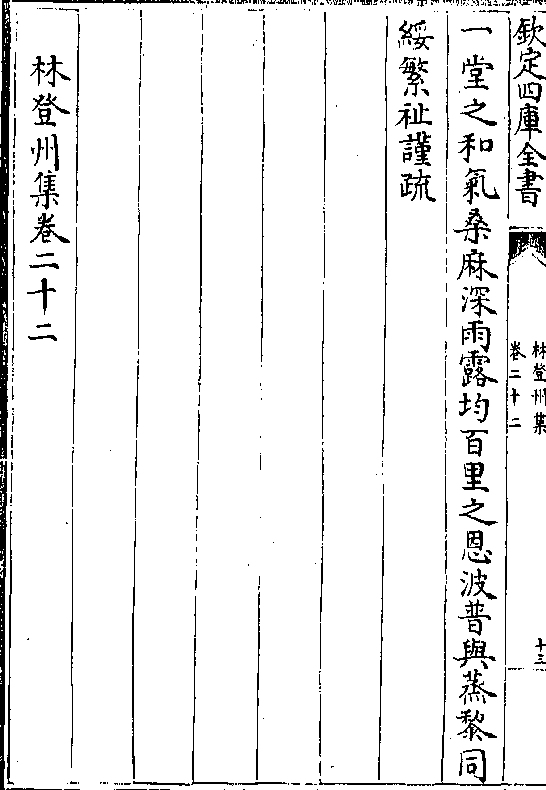 欽定四庫全書
林登州集
卷二十二
十三
一堂之和氣桑麻深雨露均百里之恩波普與蒸黎同
綏繁祉謹疏
林登州集卷二十二